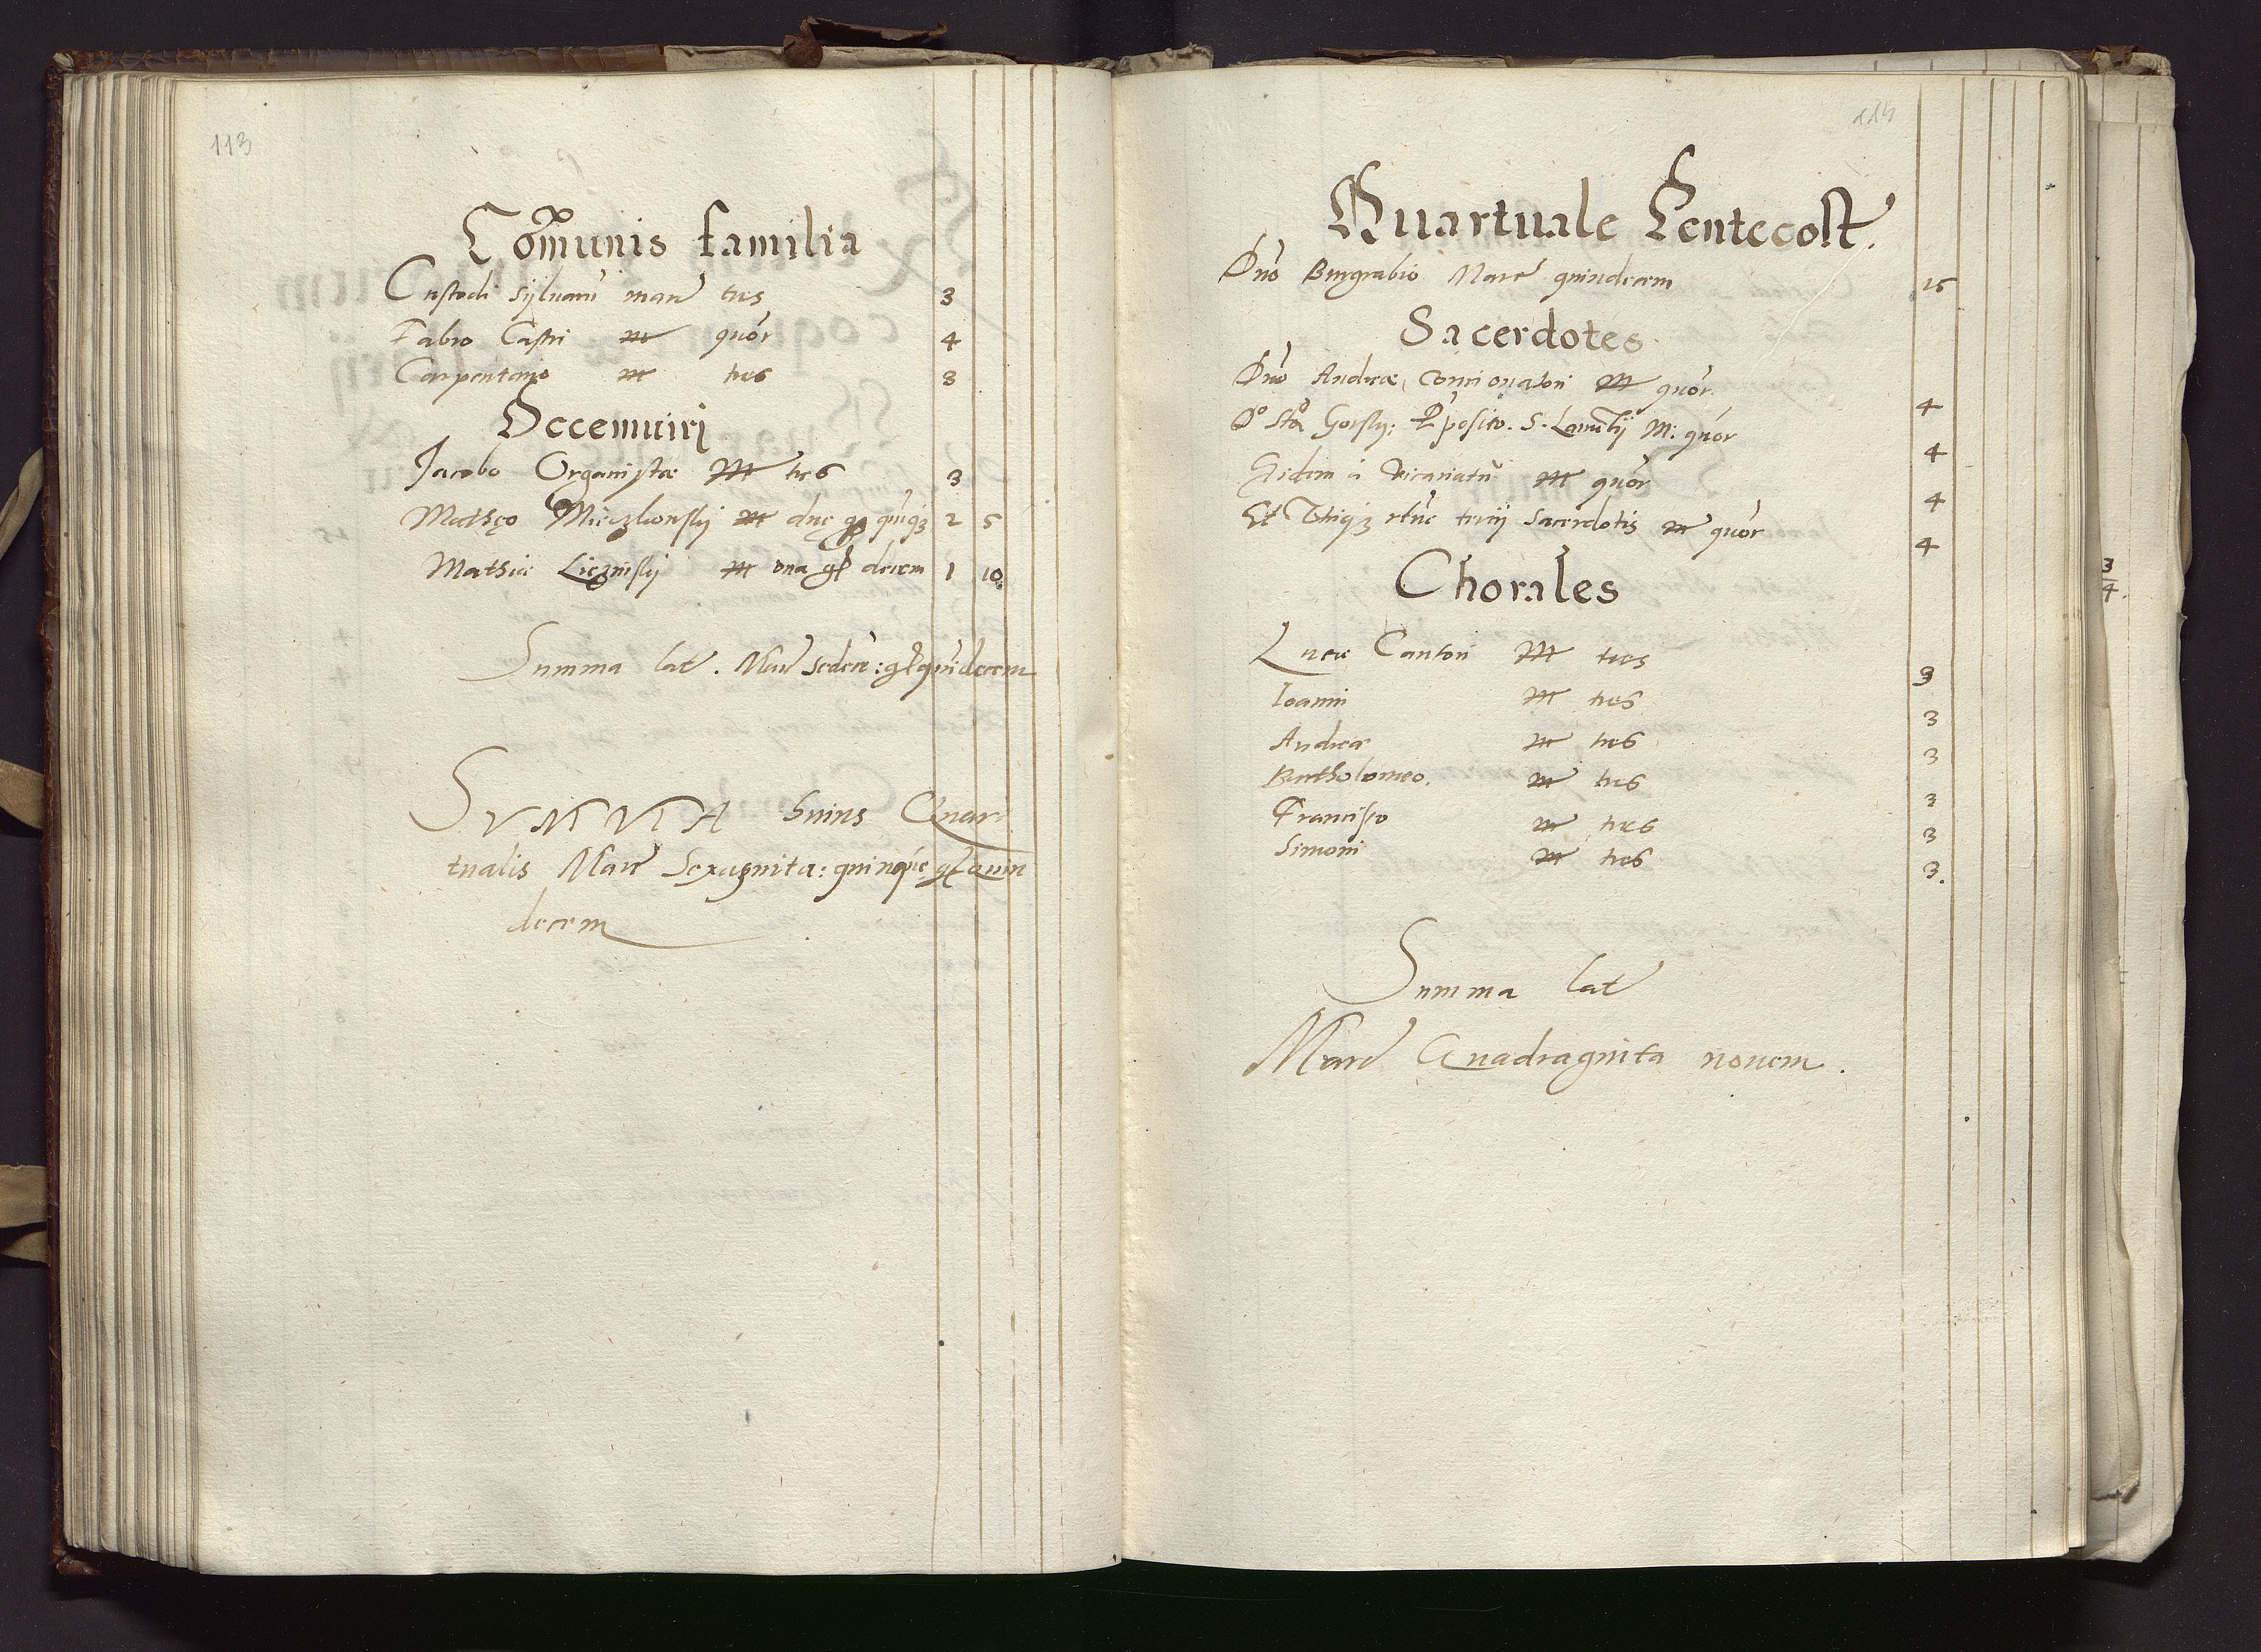 113
Com̃unis familia
Custodi sÿluarũ marc̃ tres 3
Fabro Castri m̃ quór 4
Carpentario m̃ tres 3
Decemuirj
Jacobo Organistæ M̃ tres 3
Mathęo Mieczkowskj m̃ duę g̃ quiq3 2 5
Mathiæ Liczniskj m̃ vna g̃ decem 1 10
Summa lat̃. Marc̃ sedecĩ: g̃ quĩdecem
SVMMA huius Quar
tualis Marc̃ Sexaginta: quinq́ue g̃ quin
decem
114
Quartuale Pentecost.
Dño Burgrabio Marc̃ quindecem 15
Sacerdotes
Dño Andreæ concionatori M̃ quór 4
Dº Sta Gorskj: p̃posito. S. M: quór 4
Eidem à vicariatũ m̃ quór 4
Et tercij sacerdotis m̃ quór 4
Chorales
Lucæ Cantori M̃ tres 3
Ioanni m̃ tres 3
Andreæ m̃ tres 3
Bartholomeo. m̃ tres 3
Francisco m̃ tres 3
Simoni m̃ tres 3.
Summa lat̃
Marc̃ Quadraginta nouem.
3
4.